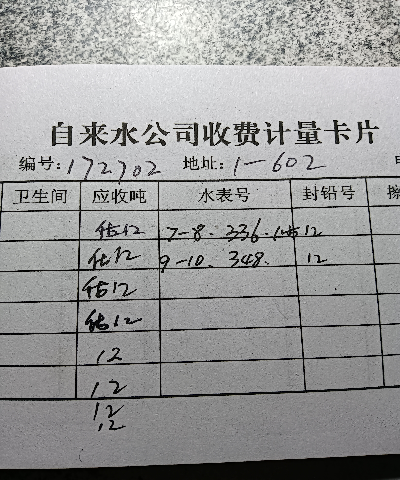 自来水公司收费计量卡片
编号: 172702 地址: 1-602
卫生间 应收吨 水表号 封铅号
估12 7-8. 336. 12
估12 9-10. 348. 12
估12
估12
12
12
12
12